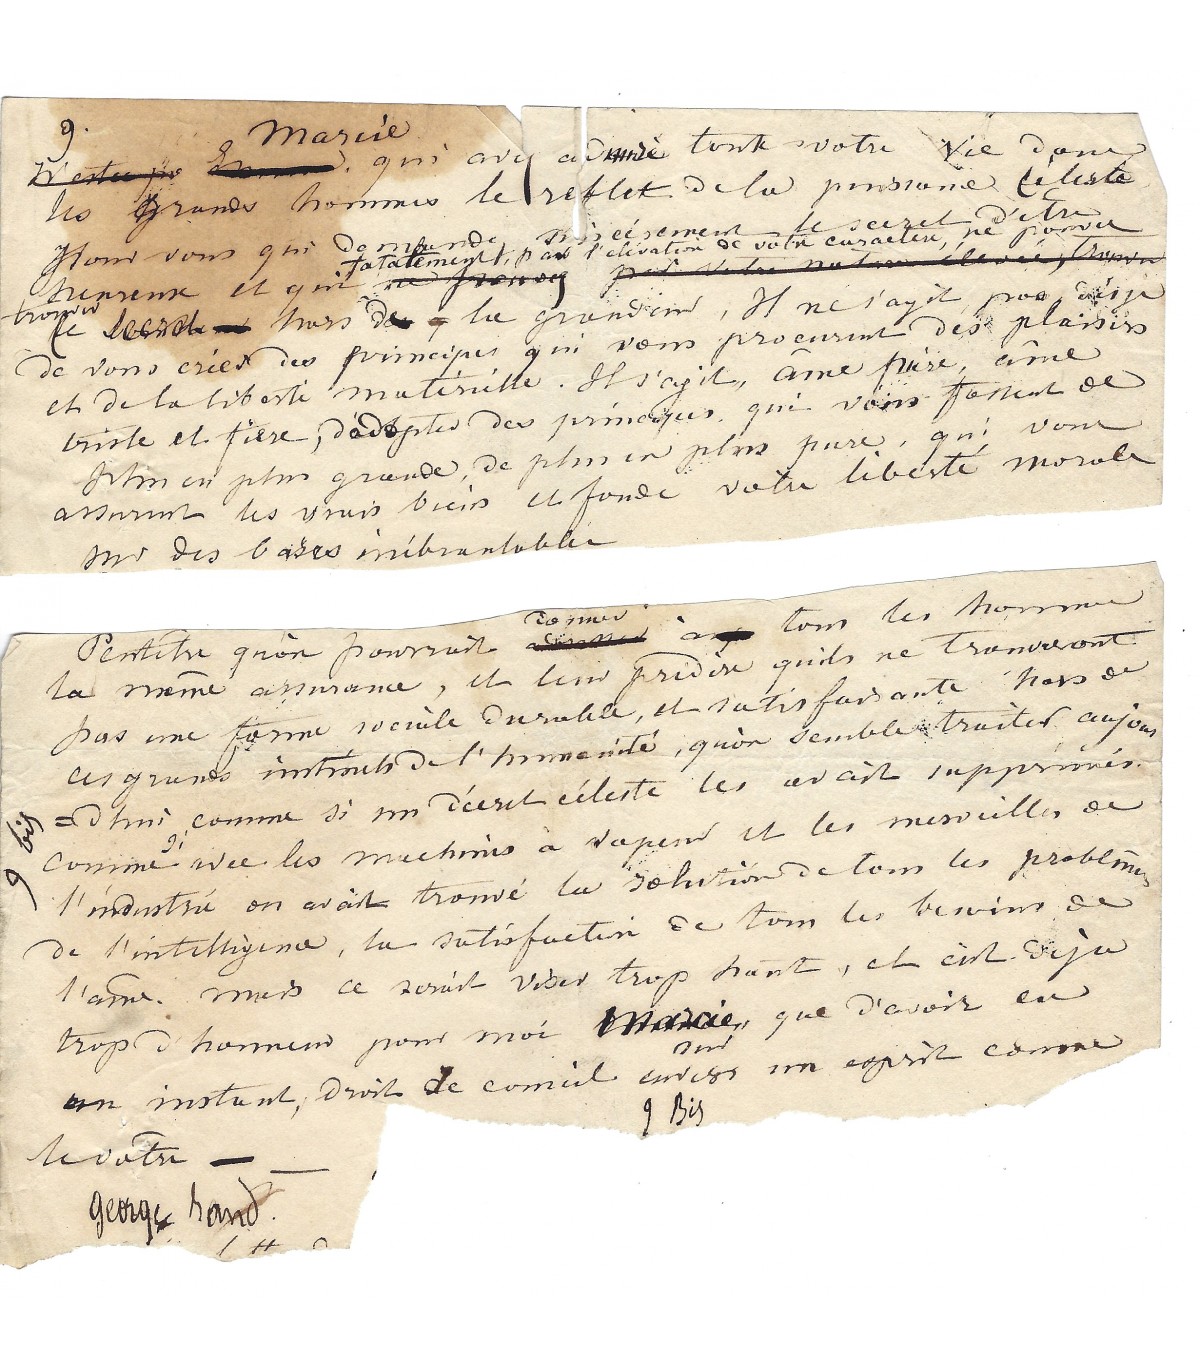 9.
Marcie
N'estce pas qui avez admiré toute votre vie dans
les grands hommes le reflet de la puissance céleste
Pour vous qui demandez sincèrement le secret d'etre
fatalement, par l'élévation de votre caractère, ne pouvez
heureuse et qui ne pouvez par votre nature élevée, trouver
trouver
le secret hors de la grandeur, Il ne s'agit pas déjà
de vous créer des principes qui vous procurent des plaisirs
et de la liberté matérielle. Il s'agit, âme fière, âme
triste et fière, d'adopter des principes qui vous fassent de
plus en plus grande, de plus en plus pure, qui vous
assurent les vrais biens et fonde votre liberté morale
sur des bases inébranlables
donner
Peutêtre qu'on pourrait adresser à tous les hommes
la même assurance, et leur prédire qu'ils ne trouveront
pas une forme sociale durable, et satisfaisante hors de
ces grands instincts de l'humanité, qu'on semble traiter aujour
=d'hui comme si un décret céleste les avait supprimés.
comme si avec les machines à vapeur et les merveilles de
l'industrie on avait trouvé la solution de tous les problêmes
de l'intelligence, la satisfaction de tous les besoins de
l'âme. mais ce serait viser trop haut, et c'est déja
trop d'honneur pour moi Marcie, que d'avoir eu
sur
un instant, droit de conseil envers un esprit comme
9 bis
9 Bis
le votre —
george Sand.